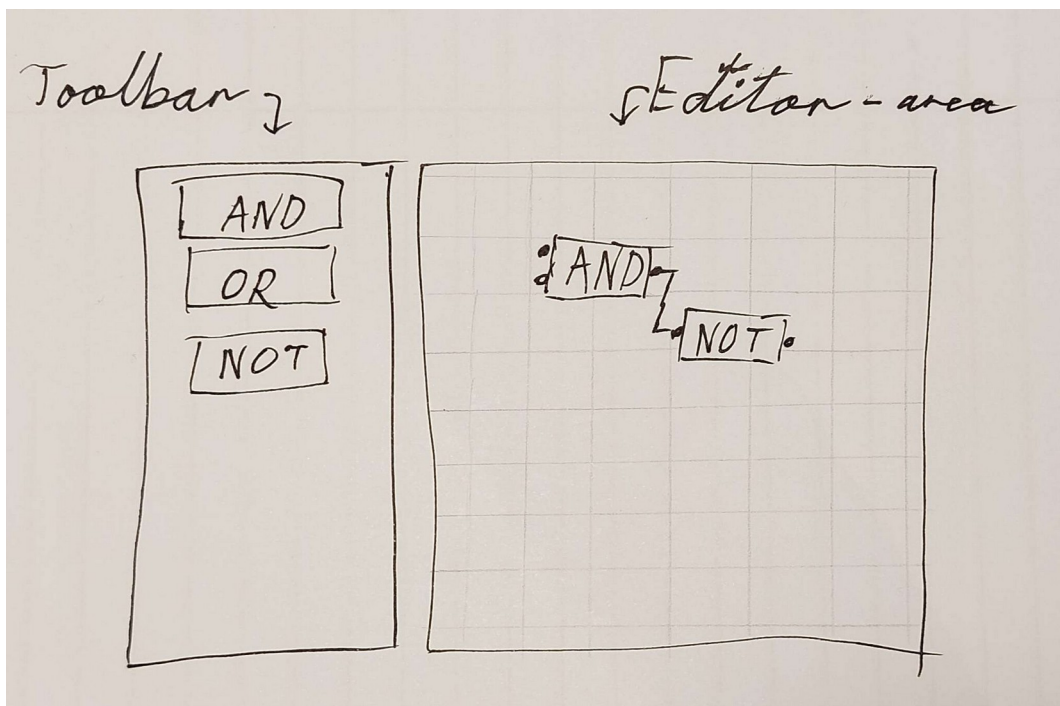 Toolbar
Editor-area
AND
OR
NOT
AND
NOT